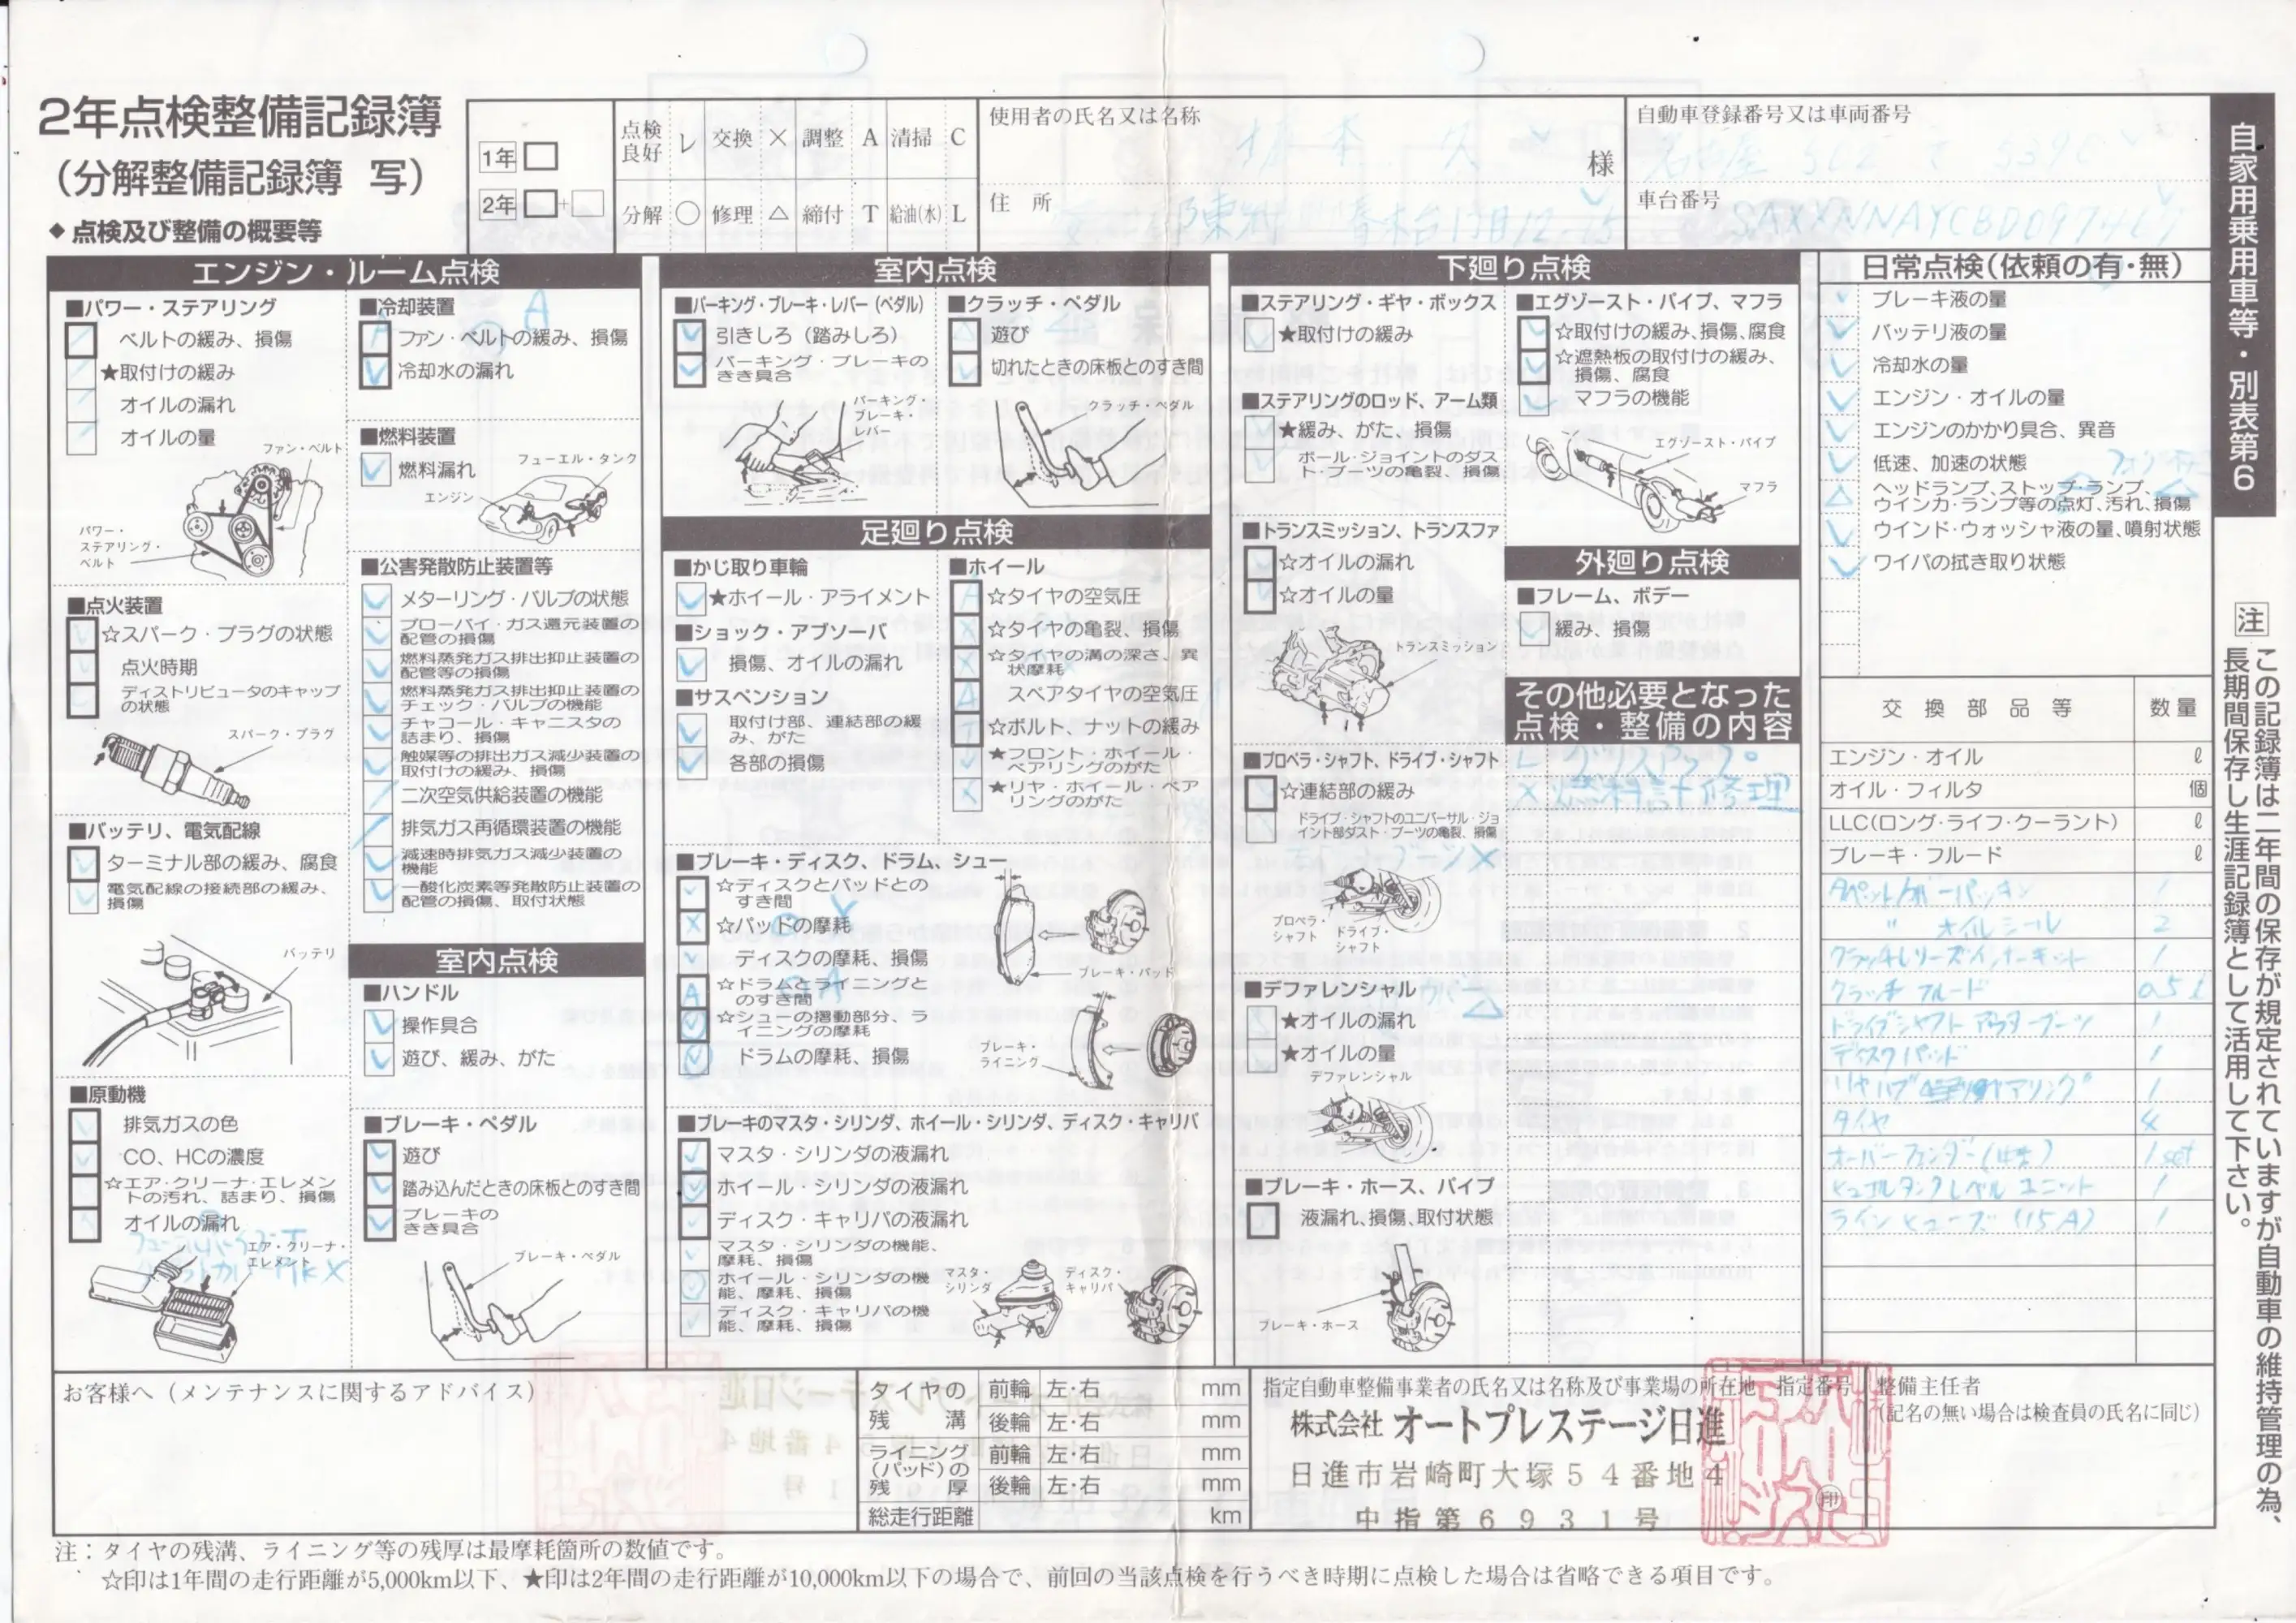 2年点検整備記録簿
(分解整備記録簿 写)
◆点検及び整備の概要等
1年
2年 +
点検良好 レ 交換 × 調整 A 清掃 C
分解 ○ 修理 △ 締付 T 給油(水) L
使用者の氏名又は名称
様
住 所
自動車登録番号又は車両番号
車台番号
SAXXNNAYCBD097467
自家用乗用車等・別表第6
エンジン・ルーム点検
■パワー・ステアリング
ベルトの緩み、損傷
★取付けの緩み
オイルの漏れ
オイルの量
ファン・ベルト
パワー・ステアリング・ベルト
■点火装置
☆スパーク・プラグの状態
点火時期
ディストリビュータのキャップの状態
スパーク・プラグ
■バッテリ、電気配線
ターミナル部の緩み、腐食
電気配線の接続部の緩み、損傷
バッテリ
■原動機
排気ガスの色
CO、HCの濃度
☆エア・クリーナ・エレメントの汚れ、詰まり、損傷
オイルの漏れ
エア・クリーナ・エレメント
■冷却装置
A
ファン・ベルトの緩み、損傷
冷却水の漏れ
■燃料装置
燃料漏れ
フューエル・タンク
エンジン
■公害発散防止装置等
メターリング・バルブの状態
ブローバイ・ガス還元装置の配管の損傷
燃料蒸発ガス排出抑止装置の配管等の損傷
燃料蒸発ガス排出抑止装置のチェック・バルブの機能
チャコール・キャニスタの詰まり、損傷
触媒等の排出ガス減少装置の取付けの緩み、損傷
二次空気供給装置の機能
排気ガス再循環装置の機能
減速時排気ガス減少装置の機能
一酸化炭素等発散防止装置の配管の損傷、取付状態
室内点検
■ハンドル
操作具合
遊び、緩み、がた
■ブレーキ・ペダル
遊び
踏み込んだときの床板とのすき間
ブレーキのきき具合
ブレーキ・ペダル
室内点検
■パーキング・ブレーキ・レバー(ペダル)
引きしろ(踏みしろ)
パーキング・ブレーキのきき具合
パーキング・ブレーキ・レバー
■クラッチ・ペダル
遊び
切れたときの床板とのすき間
クラッチ・ペダル
足廻り点検
■かじ取り車輪
★ホイール・アライメント
■ショック・アブソーバ
損傷、オイルの漏れ
■サスペンション
取付け部、連結部の緩み、がた
各部の損傷
■ホイール
☆タイヤの空気圧
☆タイヤの亀裂、損傷
☆タイヤの溝の深さ、異状摩耗
スペアタイヤの空気圧
☆ボルト、ナットの緩み
★フロント・ホイール・ベアリングのがた
★リヤ・ホイール・ベアリングのがた
■ブレーキ・ディスク、ドラム、シュー
☆ディスクとパッドとのすき間
☆パッドの摩耗
ディスクの摩耗、損傷
☆ドラムとライニングとのすき間
☆シューの摺動部分、ライニングの摩耗
ドラムの摩耗、損傷
ブレーキ・パッド
ブレーキ・ライニング
■ブレーキのマスタ・シリンダ、ホイール・シリンダ、ディスク・キャリパ
マスタ・シリンダの液漏れ
ホイール・シリンダの液漏れ
ディスク・キャリパの液漏れ
マスタ・シリンダの機能、摩耗、損傷
ホイール・シリンダの機能、摩耗、損傷
ディスク・キャリパの機能、摩耗、損傷
マスタ・シリンダ
ディスク・キャリパ
下廻り点検
■ステアリング・ギヤ・ボックス
★取付けの緩み
■ステアリングのロッド、アーム類
★緩み、がた、損傷
ボール・ジョイントのダスト・ブーツの亀裂、損傷
■トランスミッション、トランスファ
☆オイルの漏れ
☆オイルの量
トランスミッション
■プロペラ・シャフト、ドライブ・シャフト
☆連結部の緩み
ドライブ・シャフトのユニバーサル・ジョイント部ダスト・ブーツの亀裂、損傷
ブーツ×
プロペラ・シャフト
ドライブ・シャフト
■デファレンシャル
★オイルの漏れ
★オイルの量
デファレンシャル
■ブレーキ・ホース、パイプ
液漏れ、損傷、取付状態
ブレーキ・ホース
■エグゾースト・パイプ、マフラ
☆取付けの緩み、損傷、腐食
☆遮熱板の取付けの緩み、損傷、腐食
マフラの機能
エグゾースト・パイプ
マフラ
外廻り点検
■フレーム、ボデー
緩み、損傷
その他必要となった点検・整備の内容
L グリスアップ
× 燃料計修理
日常点検(依頼の有・無)
ブレーキ液の量
バッテリ液の量
冷却水の量
エンジン・オイルの量
エンジンのかかり具合、異音
低速、加速の状態
ヘッドランプ、ストップ・ランプ、ウインカ・ランプ等の点灯、汚れ、損傷
ウインド・ウォッシャ液の量、噴射状態
ワイパの拭き取り状態
交換部品等 数量
エンジン・オイル ℓ
オイル・フィルタ 個
LLC(ロング・ライフ・クーラント) ℓ
ブレーキ・フルード ℓ
タペットカバーパッキン 1
〃 オイルシール 2
クラッチレリーズインナーキット 1
クラッチフルード 0.5ℓ
ドライブシャフトアウターブーツ 1
ディスクパッド 1
リヤハブベアリング 1
タイヤ 4
オーバーフェンダー 1set
ヒューエルタンクレベルユニット 1
ラインヒューズ(15A) 1
注 この記録簿は二年間の保存が規定されていますが自動車の維持管理の為、
長期間保存し生涯記録簿として活用して下さい。
お客様へ(メンテナンスに関するアドバイス)
タイヤの残溝 前輪 左・右 mm
後輪 左・右 mm
ライニング(パッド)の残厚 前輪 左・右 mm
後輪 左・右 mm
総走行距離 km
指定自動車整備事業者の氏名又は名称及び事業場の所在地 指定番号
株式会社 オートプレステージ日進
日進市岩崎町大塚54番地4
中指第6931号
印
整備主任者
(記名の無い場合は検査員の氏名に同じ)
注:タイヤの残溝、ライニング等の残厚は最摩耗箇所の数値です。
☆印は1年間の走行距離が5,000km以下、★印は2年間の走行距離が10,000km以下の場合で、前回の当該点検を行うべき時期に点検した場合は省略できる項目です。